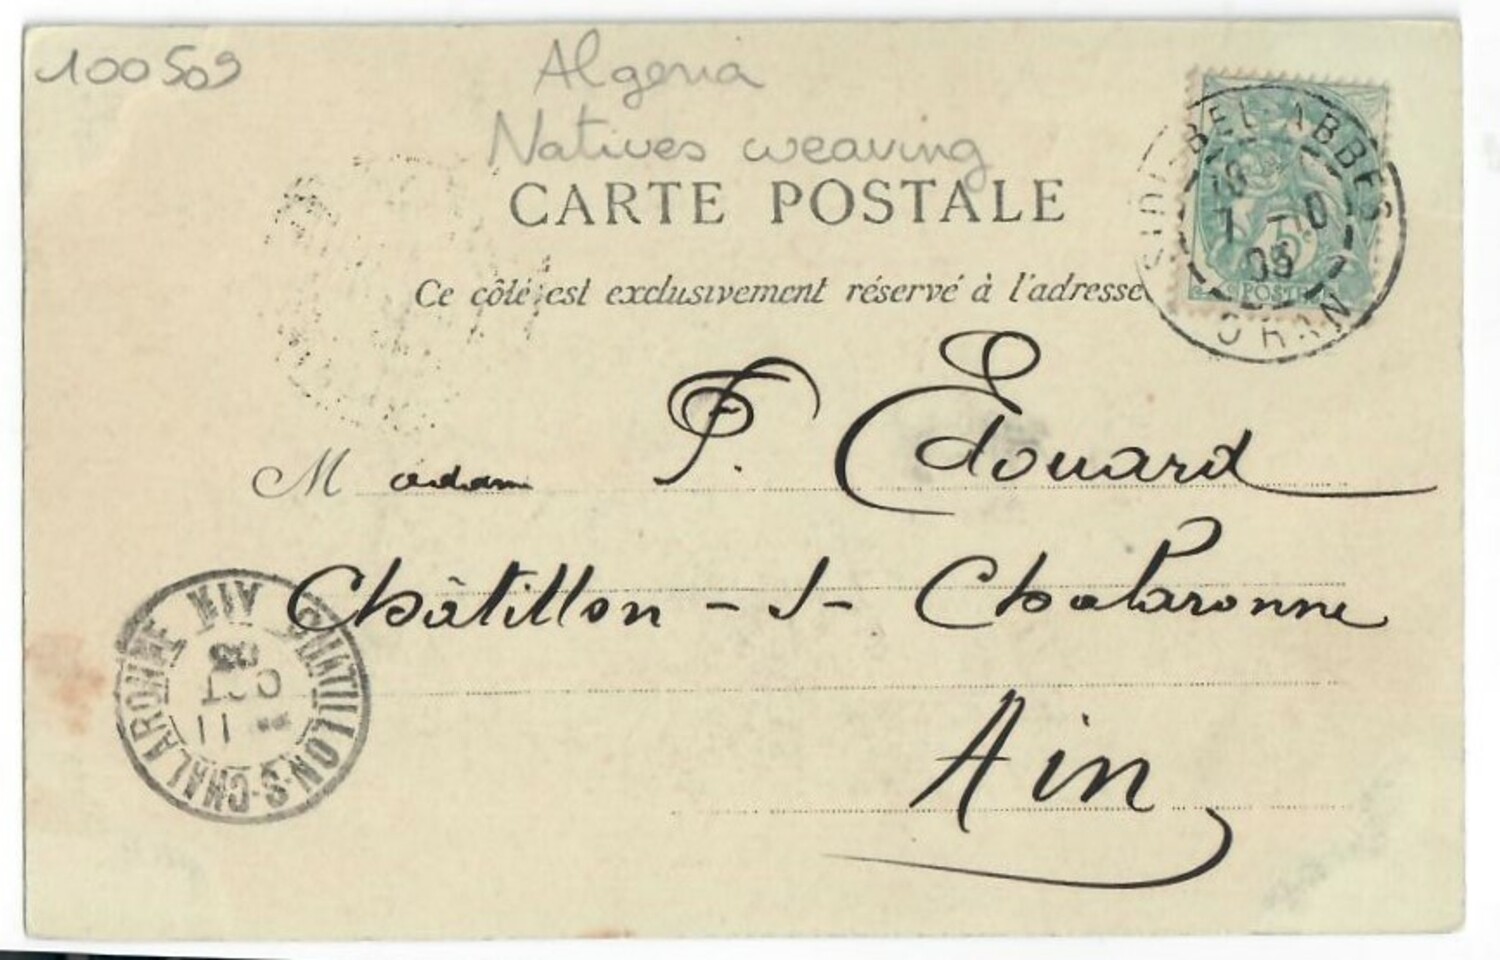 100509
Algeria
Natives weaving
CARTE POSTALE
Ce côté est exclusivement réservé à l'adresse
SIDI-BEL-ABBES
7 -10
03
ORAN
POSTES
Madam P. Edouard
Châtillon-s-Chalaronne
Ain
CHATILLON-S-CHALARONNE AIN
11
OCT
03